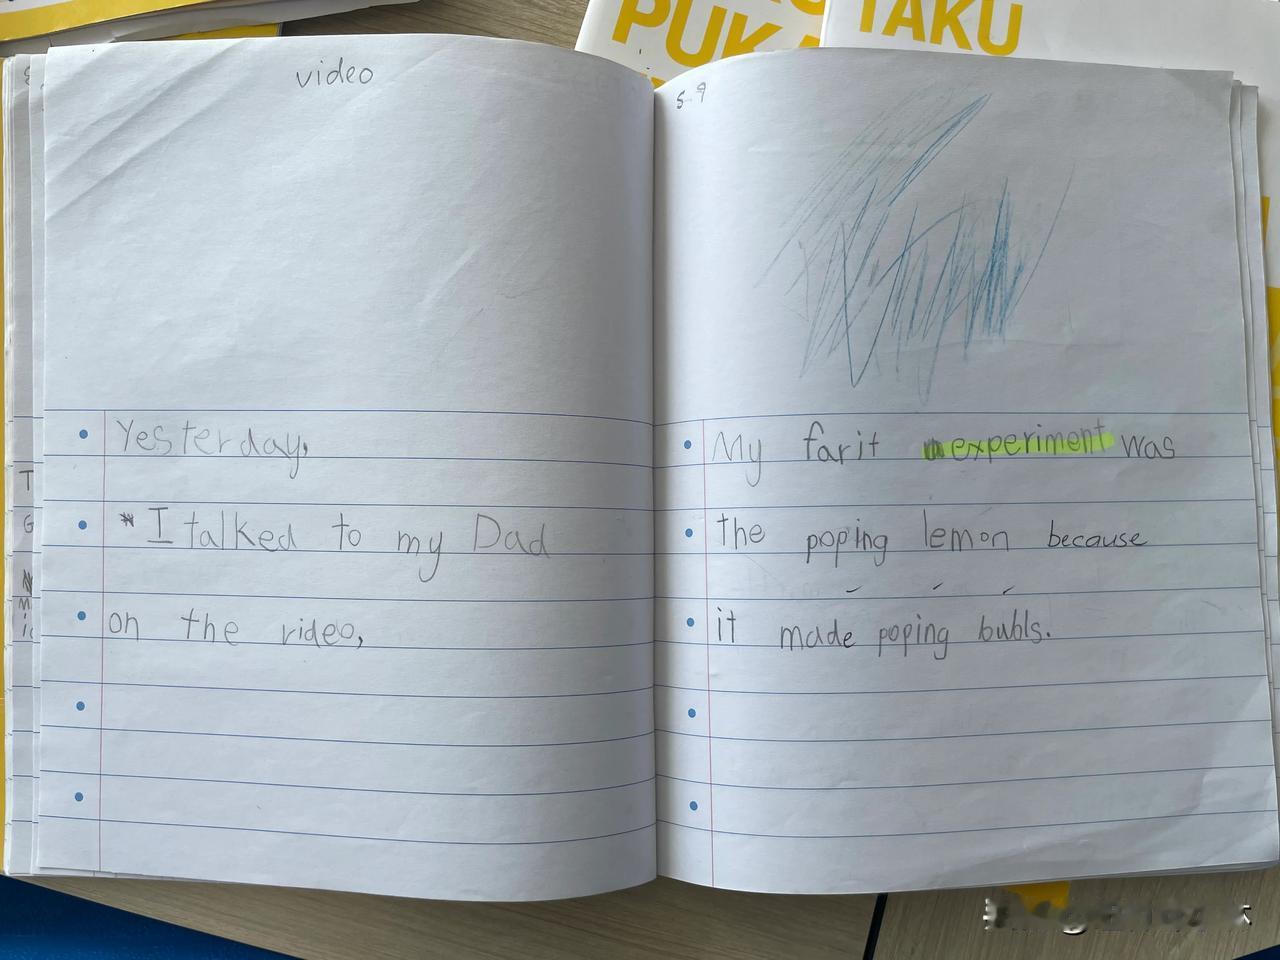 video
Yesterday,
I talked to my Dad
on the video,
5-9
My farit experiment was
the poping lemon because
it made poping bubls.
PUK
TAKU
T
G
M